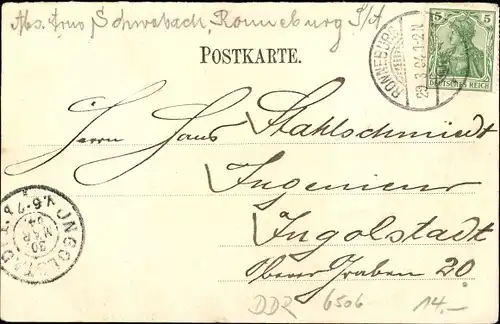 Abs. Arno Schwabach, Ronneburg S/A
POSTKARTE.
RONNEBURG
29.3.04.1-2N.
5 5
DEUTSCHES REICH
Herrn Hans Stahlschmidt
Ingenieur
Ingolstadt
Oberer Graben 20
INGOLSTADT
V.6-7
30
MAR
04
DDR 6506 14,-